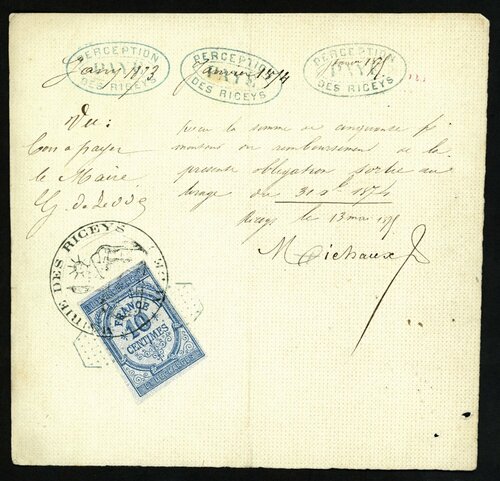 PERCEPTION
PAYÉ
DES RICEYS
Janv 1873
PERCEPTION
PAYÉ
DES RICEYS
Janvier 1874
PERCEPTION
PAYÉ
DES RICEYS
Vu:
Bon à payer
le Maire
reçu la somme de cinquante f
montant du remboursement de la
présente obligation sortie au
tirage du 31 Xbre 1874
Riceys le 13 mai
Michaux
MAIRIE DES RICEYS
FRANCE
10
CENTIMES